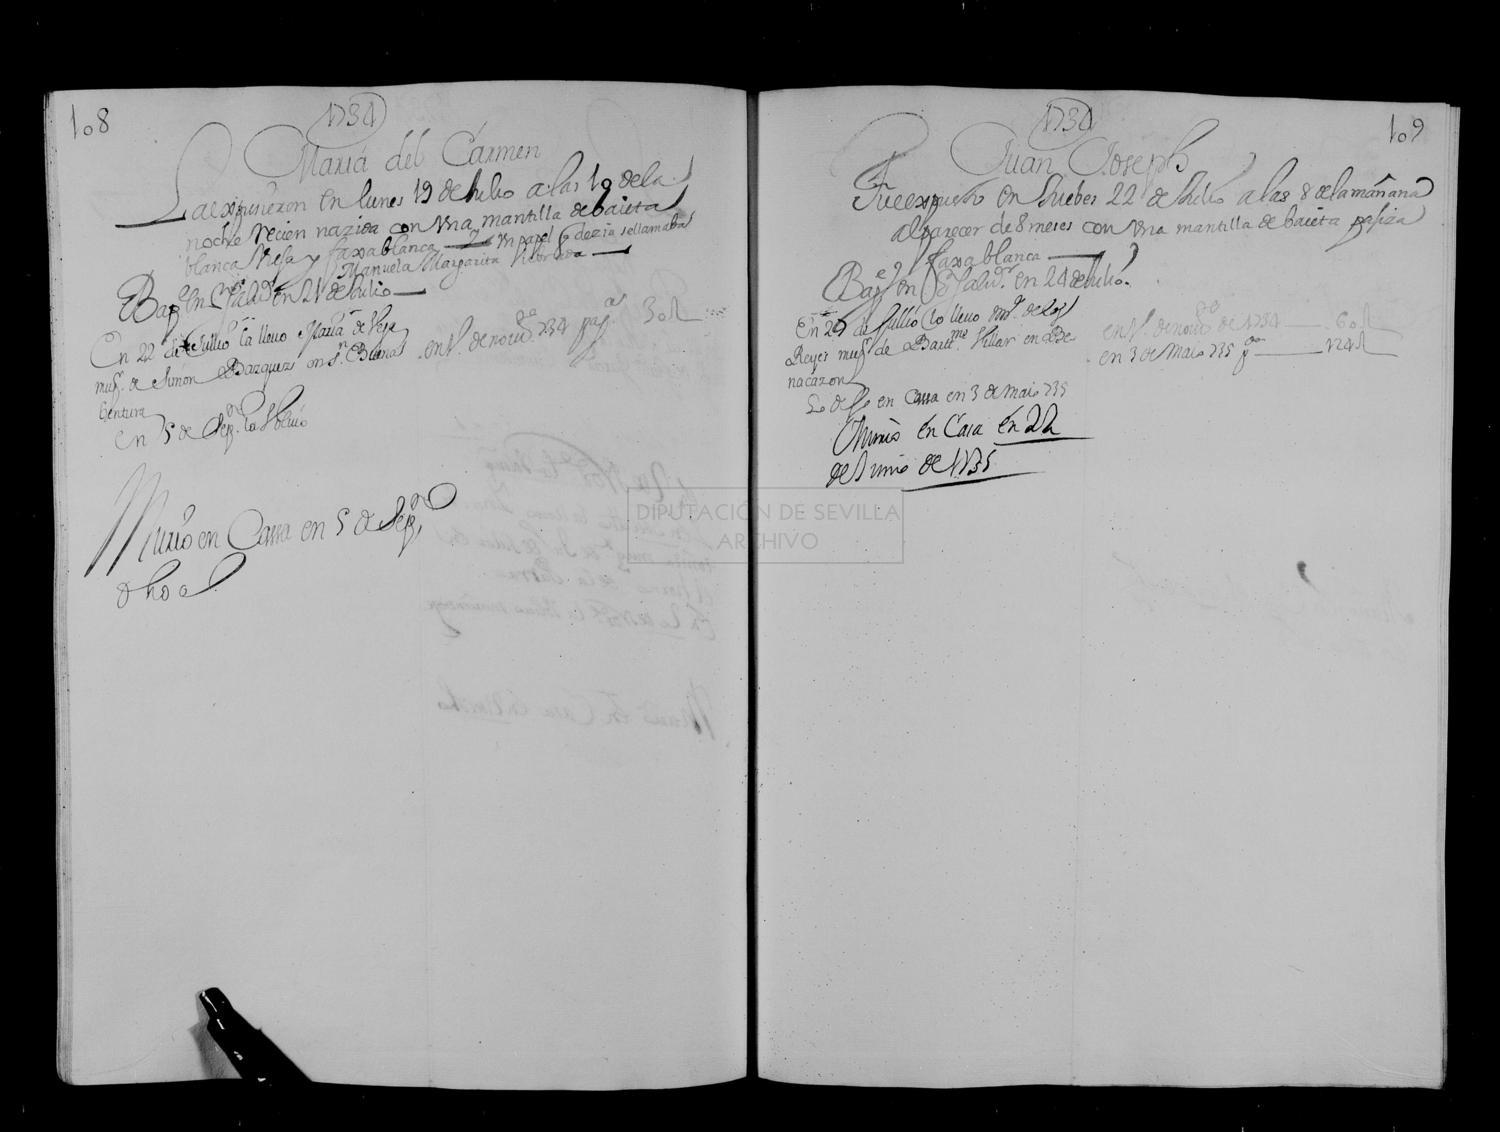 108
1734
Maria del Carmen
La expusieron en lunes 19 de Julio a las 10 de la
noche recien nazida con Vna mantilla de baieta
blanca Viexa y faxa blanca Vn papel q dezia se llamaba
Manuela Margarita
Bap.e en S. Salv.or en 21 de Julio
En 22 de Jullio la lleuo Maria de Vega
mug.r de Simon Bazquez en S.n Buena
bentura
en 1.º de nov.e 734 pag.os 30 R
en 5 de Sep.re la Volvio
Murio en Cassa en 5 de Sep.re
dho a
109
1734
Juan Joseph
Fue expuesto en Juebes 22 de Julio a las 8 de la mañana
al parecer de 8 meses con Vna mantilla de baieta pasiza
faxa blanca
Bap.e en S. Salv.or en 24 de Julio
En 29 de Jullio lo lleuo M.a de los
Reyes mug.r de Bart.me Villar en Be
nacazon
en 1.º de nov.e de 1734 60 R
en 3 de Maio 735 p.os 124 R
en Cassa en 3 de maio 735
Murio en Casa en 22
de Junio de 1735
DIPUTACIÓN DE SEVILLA
ARCHIVO